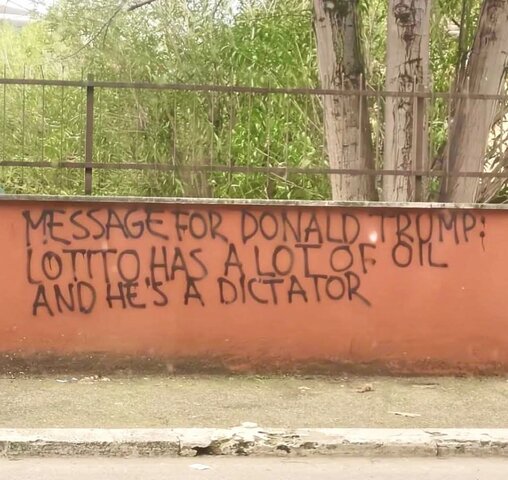 MESSAGE FOR DONALD TRUMP:
LOTITO HAS A LOT OF OIL
AND HE'S A DICTATOR